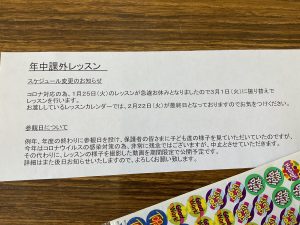 年中課外レッスン
スケジュール変更のお知らせ
コロナ対応の為、1月25日(火)のレッスンが急遽お休みとなりましたので3月1日(火)に振り替えで
レッスンを行います。
お渡ししているレッスンカレンダーでは、2月22日(火)が最終日となっておりますのでお気をつけください。
参観日について
例年、年度の終わりに参観日を設け、保護者の皆さまに子ども達の様子を見ていただいていたのですが、
今年はコロナウイルスの感染対策の為、非常に残念ではございますが、中止とさせていただきます。
その代わりに、レッスンの様子を撮影した動画を期間限定で公開予定です。
詳細はまた後日お知らせいたしますので、よろしくお願い致します。